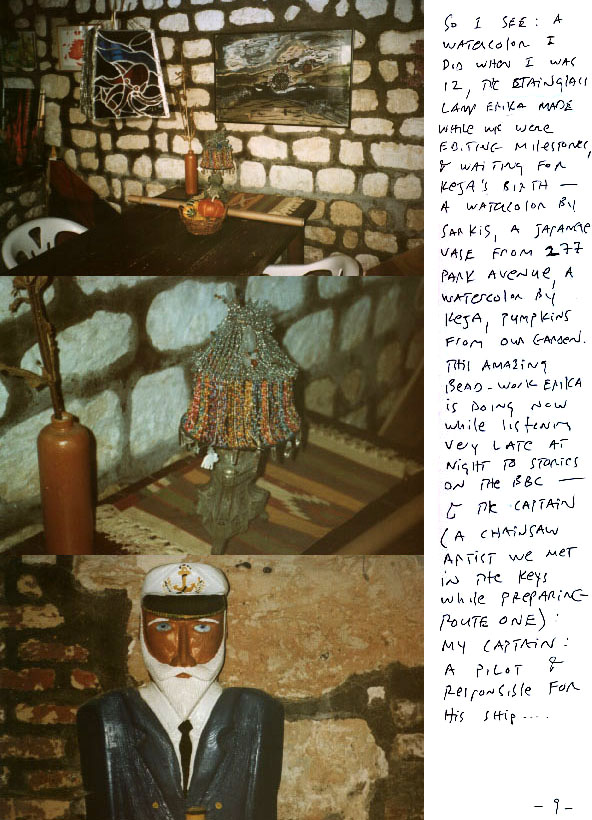 SO I SEE: A
WATERCOLOR I
DID WHEN I WAS
12, THE STAINGLASS
LAMP ERIKA MADE
WHILE WE WERE
EDITING MILESTONES,
& WAITING FOR
KEJA'S BIRTH —
A WATERCOLOR BY
SARKIS, A JAPANESE
VASE FROM 277
PARK AVENUE, A
WATERCOLOR BY
KEJA, PUMPKINS
FROM OUR GARDEN.
THIS AMAZING
BEAD-WORK ERIKA
IS DOING NOW
WHILE LISTENING
VERY LATE AT
NIGHT TO STORIES
ON THE BBC —
& THE CAPTAIN
(A CHAINSAW
ARTIST WE MET
IN THE KEYS
WHILE PREPARING
ROUTE ONE):
MY CAPTAIN:
A PILOT &
RESPONSIBLE FOR
HIS SHIP....
- 9 -